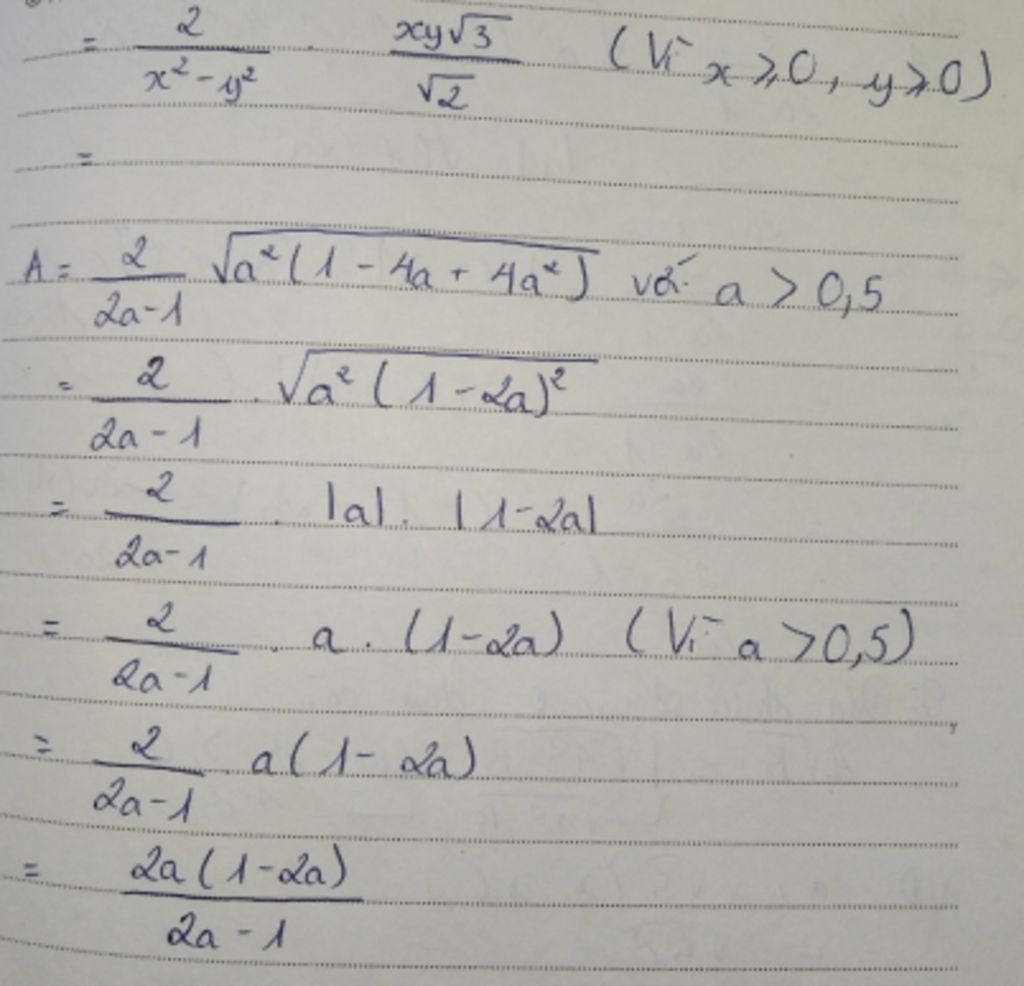 = 2/(x² - y²) . xy√3/√2 (Vì x ⩾ 0, y ⩾ 0)
=
A = 2/(2a-1) √(a²(1 - 4a + 4a²)) với a > 0,5
= 2/(2a - 1) . √(a² (1 - 2a)²)
= 2/(2a-1) . |a| . |1-2a|
= 2/(2a-1) . a . (1-2a) (Vì a > 0,5)
= 2/(2a-1) a(1- 2a)
= 2a(1-2a)/(2a-1)